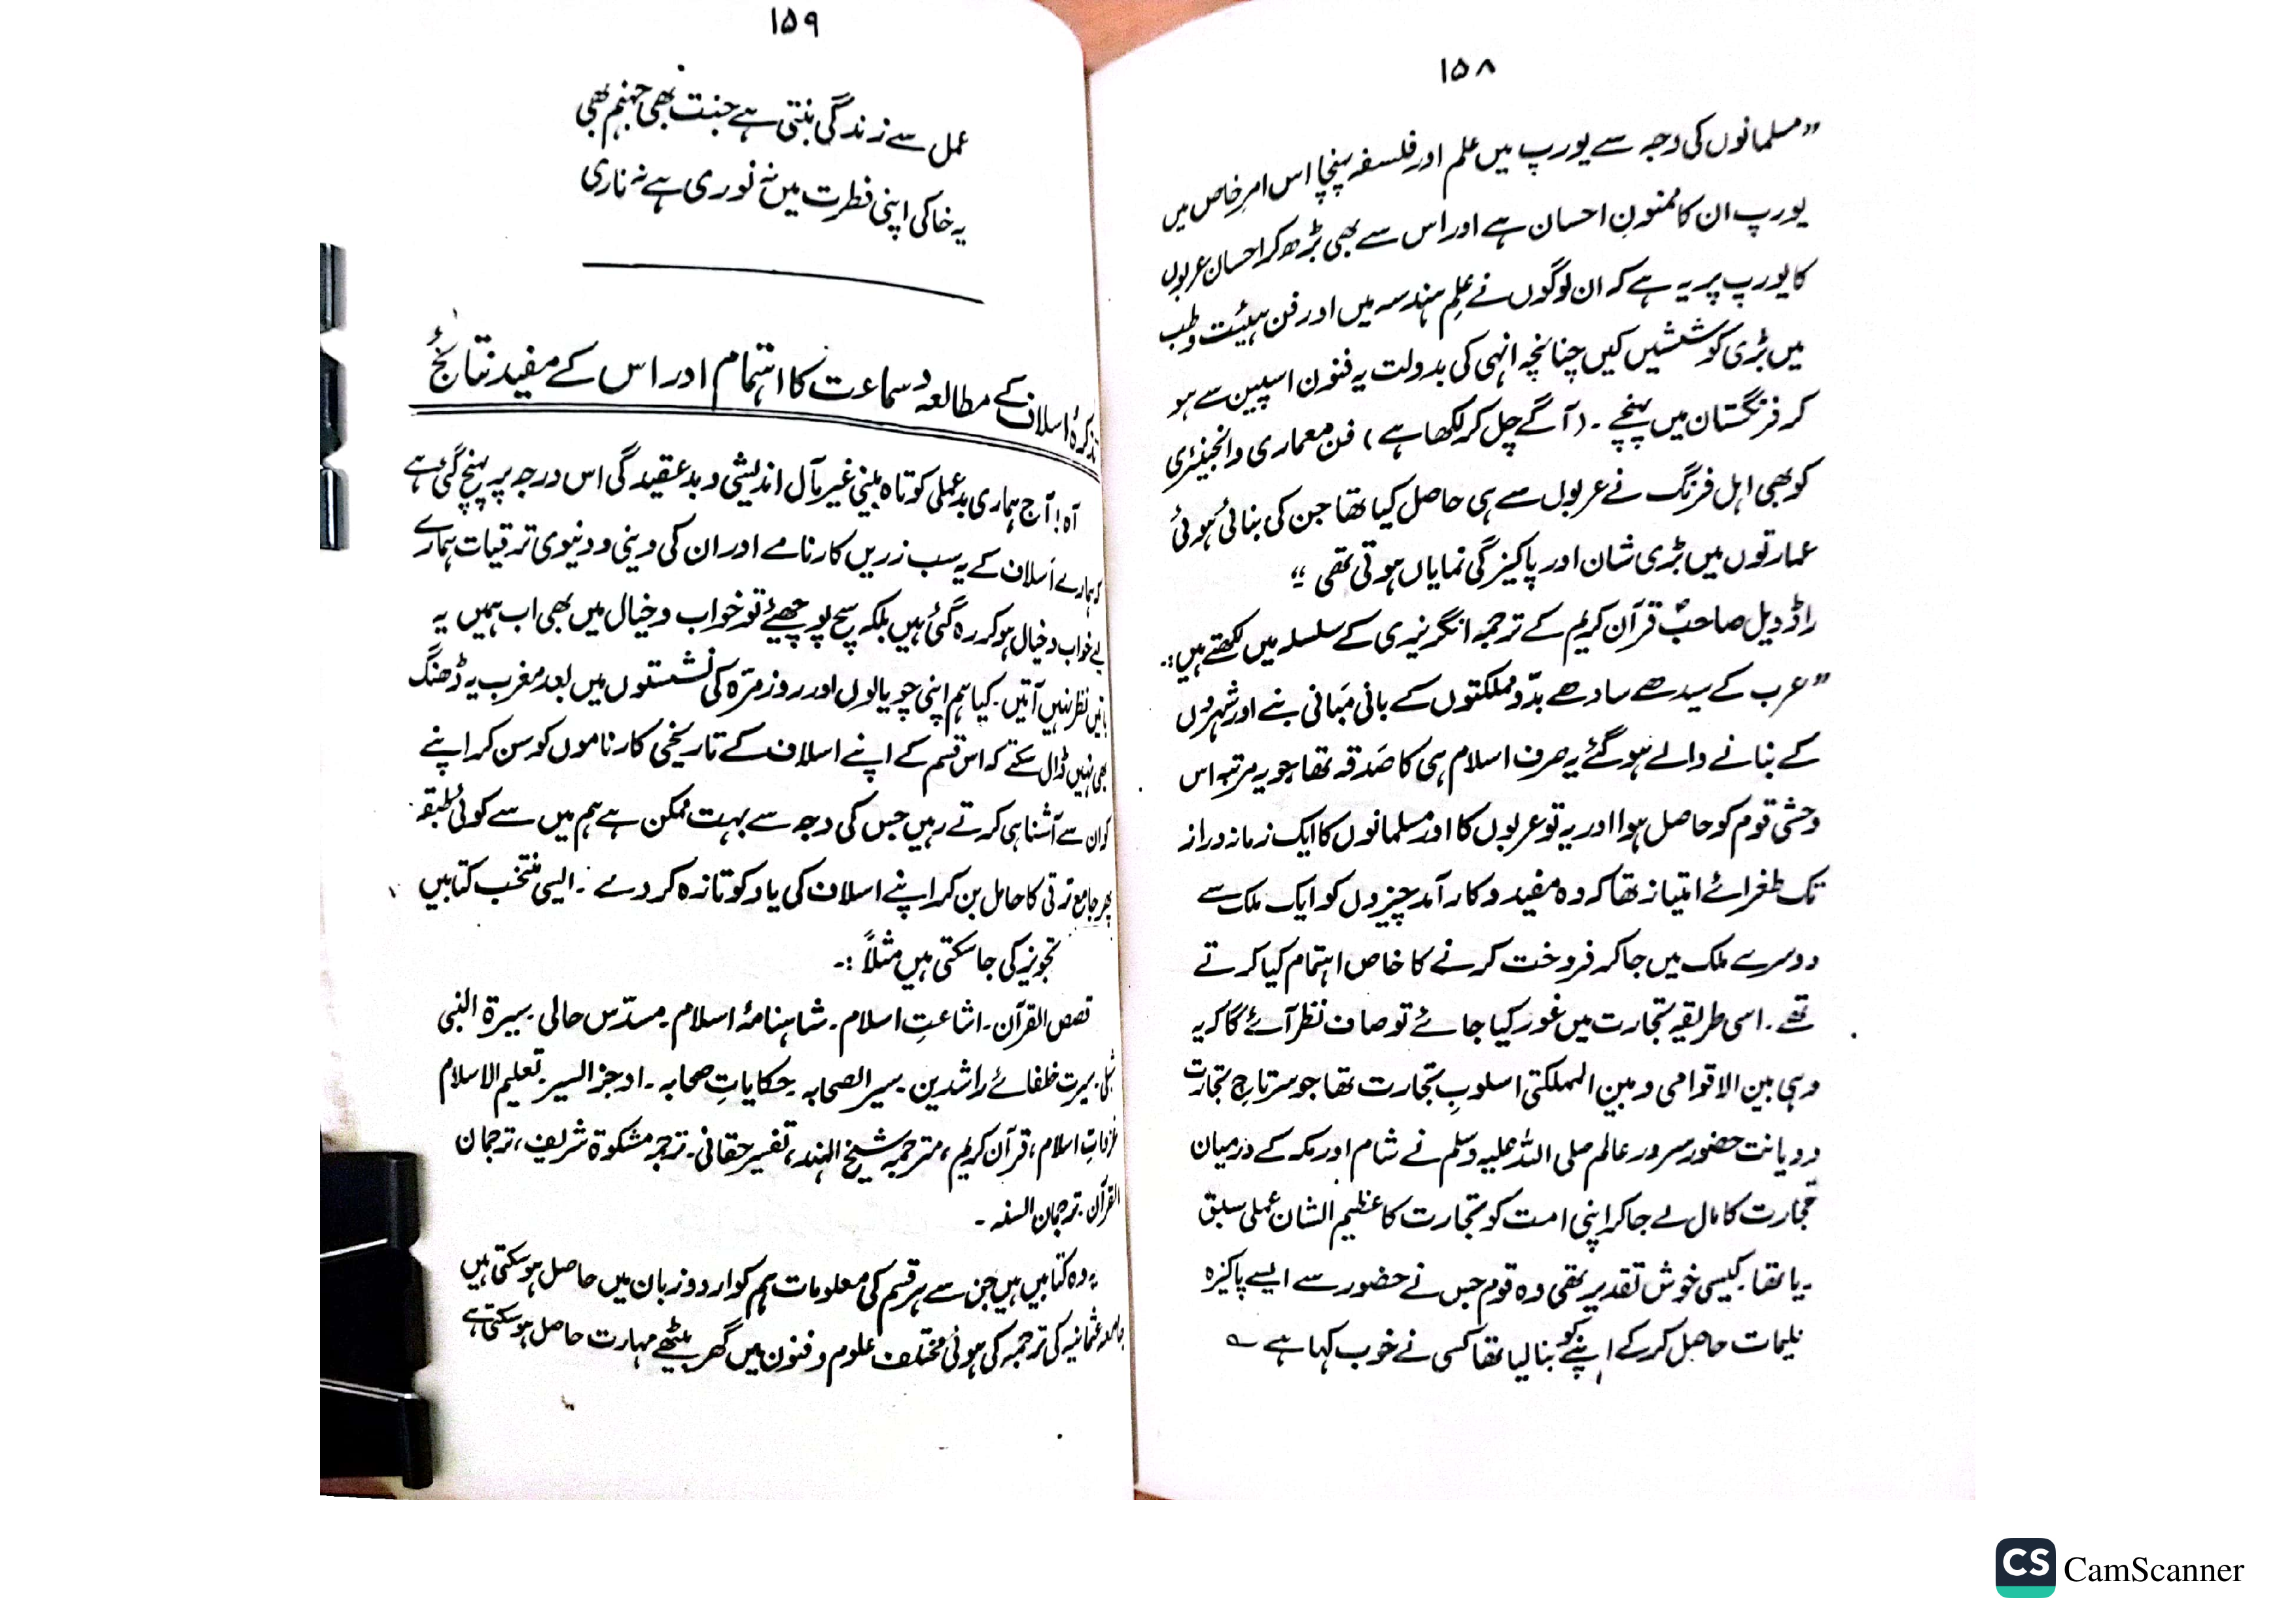 ۱۵۸
”مسلمانوں کی وجہ سے یورپ میں علم اور فلسفہ پہنچا اس امرِ خاص میں
یورپ ان کا ممنونِ احسان ہے اور اس سے بھی بڑھ کر احسان عربوں
کا یورپ پر یہ ہے کہ ان لوگوں نے علمِ ہندسہ میں اور فن ہیئت و طب
میں بڑی کوششیں کیں چنانچہ انہی کی بدولت یہ فنون اسپین سے ہو
کر فرنگستان میں پہنچے ۔ (آگے چل کر لکھا ہے) فن معماری و انجینئری
کو بھی اہل فرنگ نے عربوں سے ہی حاصل کیا تھا جن کی بنائی ہوئی
عمارتوں میں بڑی شان اور پاکیزگی نمایاں ہوتی تھی “
راڈویل صاحب قرآن کریم کے ترجمہ انگریزی کے سلسلہ میں لکھتے ہیں :۔
”عرب کے سیدھے سادھے بدّو مملکتوں کے بانی مبانی بنے اور شہروں
کے بنانے والے ہو گئے یہ صرف اسلام ہی کا صَدقہ تھا جو یہ مرتبہ اس
وحشی قوم کو حاصل ہوا اور یہ تو عربوں کا اور مسلمانوں کا ایک زمانہ دراز
تک طغرائے امتیاز تھا کہ وہ مفید و کار آمد چیزوں کو ایک ملک سے
دوسرے ملک میں جا کر فروخت کرنے کا خاص اہتمام کیا کرتے
تھے ۔ اسی طریقہ تجارت میں غور کیا جائے تو صاف نظر آئے گا کہ یہ
وہی بین الاقوامی و بین المملکتی اسلوبِ تجارت تھا جو سرتاجِ تجارت
و دیانت حضور سرور عالم صلی اللہ علیہ وسلم نے شام اور مکہ کے درمیان
تجارت کا مال لے جا کر اپنی امت کو تجارت کا عظیم الشان عملی سبق
دیا تھا ۔ کیسی خوش تقدیر تھی وہ قوم جس نے حضور سے ایسے پاکیزہ
تعلیمات حاصل کر کے اپنے کو بنا لیا تھا کسی نے خوب کہا ہے ؎
۱۵۹
عمل سے زندگی بنتی ہے جنت بھی جہنم بھی
یہ خاکی اپنی فطرت میں نہ نوری ہے نہ ناری
تذکرۂ اسلاف کے مطالعہ و سماعت کا اہتمام اور اس کے مفید نتائج
آہ! آج ہماری بد عملی کوتاہ بینی غیر مآل اندیشی و بد عقیدگی اس درجہ پر پہنچ گئی ہے
کہ ہمارے اَسلاف کے یہ سب زریں کارنامے اور ان کی دینی و دنیوی ترقیات ہمارے
لیے خواب و خیال ہو کر رہ گئی ہیں بلکہ سچ پوچھئے تو خواب و خیال میں بھی اب ہمیں یہ
باتیں نظر نہیں آتیں ۔ کیا ہم اپنی چوپالوں اور روز مرّہ کی نشستوں میں بعد مغرب یہ ڈھنگ
بھی نہیں ڈال سکتے کہ اس قسم کے اپنے اسلاف کے تاریخی کارناموں کو سن کر اپنے
کو ان سے آشنا ہی کرتے رہیں جس کی وجہ سے بہت ممکن ہے ہم میں سے کوئی طبقہ
پھر جامع ترقی کا حامل بن کر اپنے اسلاف کی یاد کو تازہ کر دے ۔ ایسی منتخب کتابیں
تجویز کی جا سکتی ہیں مثلاً :۔
قصص القرآن ۔ اشاعتِ اسلام ۔ شاہنامۂ اسلام ۔ مسدّس حالی ۔ سیرۃ النبی
شبلی ۔ سیرت خلفائے راشدین ۔ سیر الصحابہ ۔ حکایاتِ صحابہ ۔ اوجز السیر ۔ تعلیم الاسلام
اسلام ، قرآن کریم ، مترجمہ شیخ الہند ، تفسیر حقانی ۔ ترجمہ مشکوٰۃ شریف ، ترجمان
القرآن ۔ ترجمان السنہ ۔
یہ وہ کتابیں ہیں جن سے ہر قسم کی معلومات ہم کو اردو زبان میں حاصل ہو سکتی ہیں
جامعہ عثمانیہ کی ترجمہ کی ہوئی مختلف علوم و فنون میں گھر بیٹھے مہارت حاصل ہو سکتی ہے
CS CamScanner